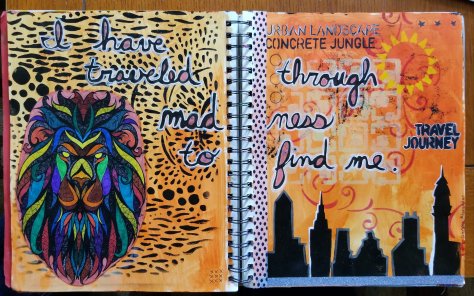 URBAN LANDSCAPE
CONCRETE JUNGLE
I have
traveled through
madness
to find me.
TRAVEL
JOURNEY